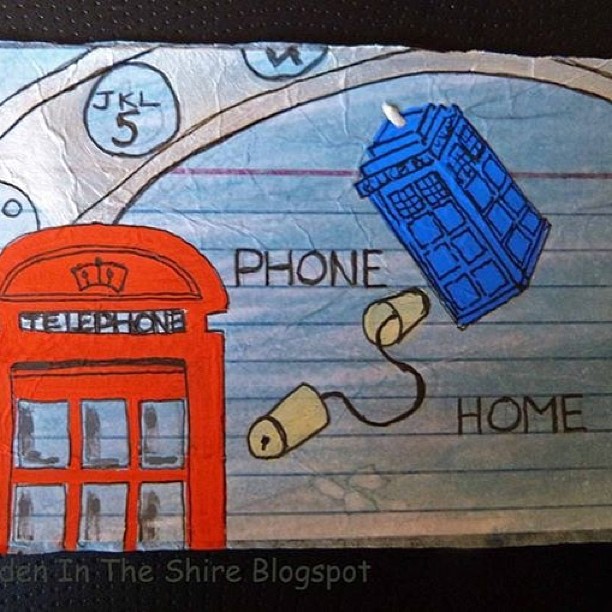 JKL
5
PHONE
TELEPHONE
HOME
den In The Shire Blogspot